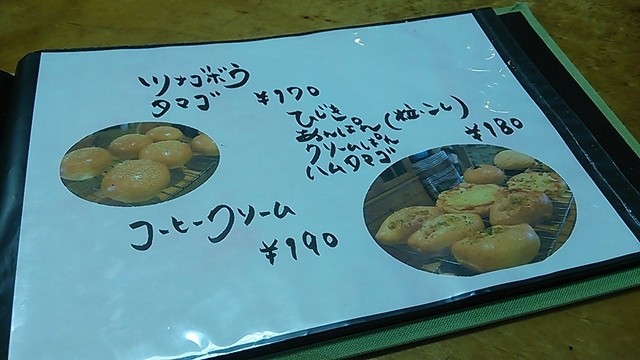 ツナゴボウ
タマゴ
¥170
ひじき
あんぱん(粒・こし)
クリームぱん
ハムタマゴ
¥180
コーヒークリーム
¥190